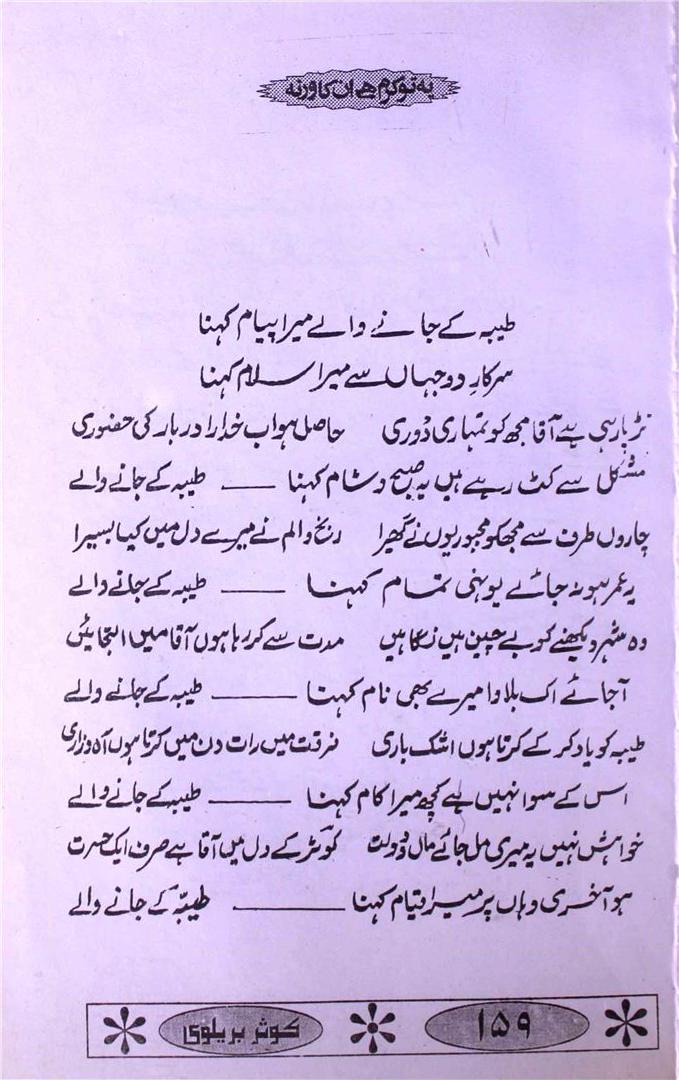 یہ تو کرم ہے ان کا ورنہ
طیبہ کے جانے والے میرا پیام کہنا
سرکارِ دو جہاں سے میرا سلام کہنا
تڑپا رہی ہے آقا مجھ کو تمہاری دُوری حاصل ہو اب خدارا دربار کی حضوری
مشکل سے کٹ رہے ہیں یہ صبح و شام کہنا ــــــ طیبہ کے جانے والے
چاروں طرف سے مجھکو مجبوریوں نے گھیرا رنج و الم نے میرے دل میں کیا بسیرا
یہ عمر ہو نہ جائے یونہی تمام کہنا ــــــ طیبہ کے جانے والے
وہ شہر دیکھنے کو بے چین ہیں نگاہیں مدت سے کر رہا ہوں آقا میں التجائیں
آجائے اک بلاوا میرے بھی نام کہنا ــــــ طیبہ کے جانے والے
طیبہ کو یاد کر کے کرتا ہوں اشک باری فرقت میں رات دن میں کرتا ہوں آہ و زاری
اس کے سوا نہیں ہے کچھ میرا کام کہنا ــــــ طیبہ کے جانے والے
خواہش نہیں یہ میری مل جائے مال و دولت کوثرؔ کے دل میں آقا ہے صرف ایک حسرت
ہو آخری وہاں پر میرا قیام کہنا ــــــ طیبہ کے جانے والے
۱۵۹ کوثر بریلوی